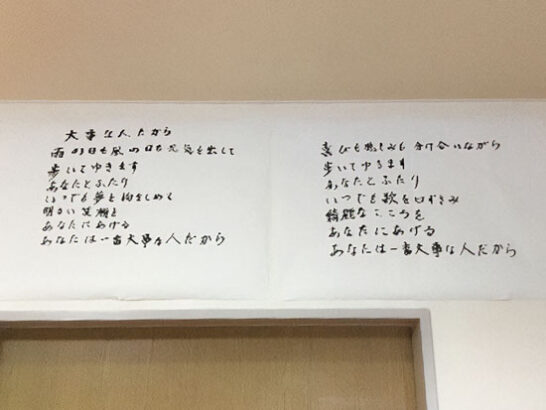 大事な人だから
雨の日も風の日も元気を出して
歩いてゆきます
あなたとふたり
いつでも夢を抱きしめて
明るい笑顔を
あなたにあげる
あなたは一番大事な人だから
喜びも悲しみも分け合いながら
歩いてゆきます
あなたとふたり
いつでも歌を口ずさみ
綺麗なこころを
あなたにあげる
あなたは一番大事な人だから